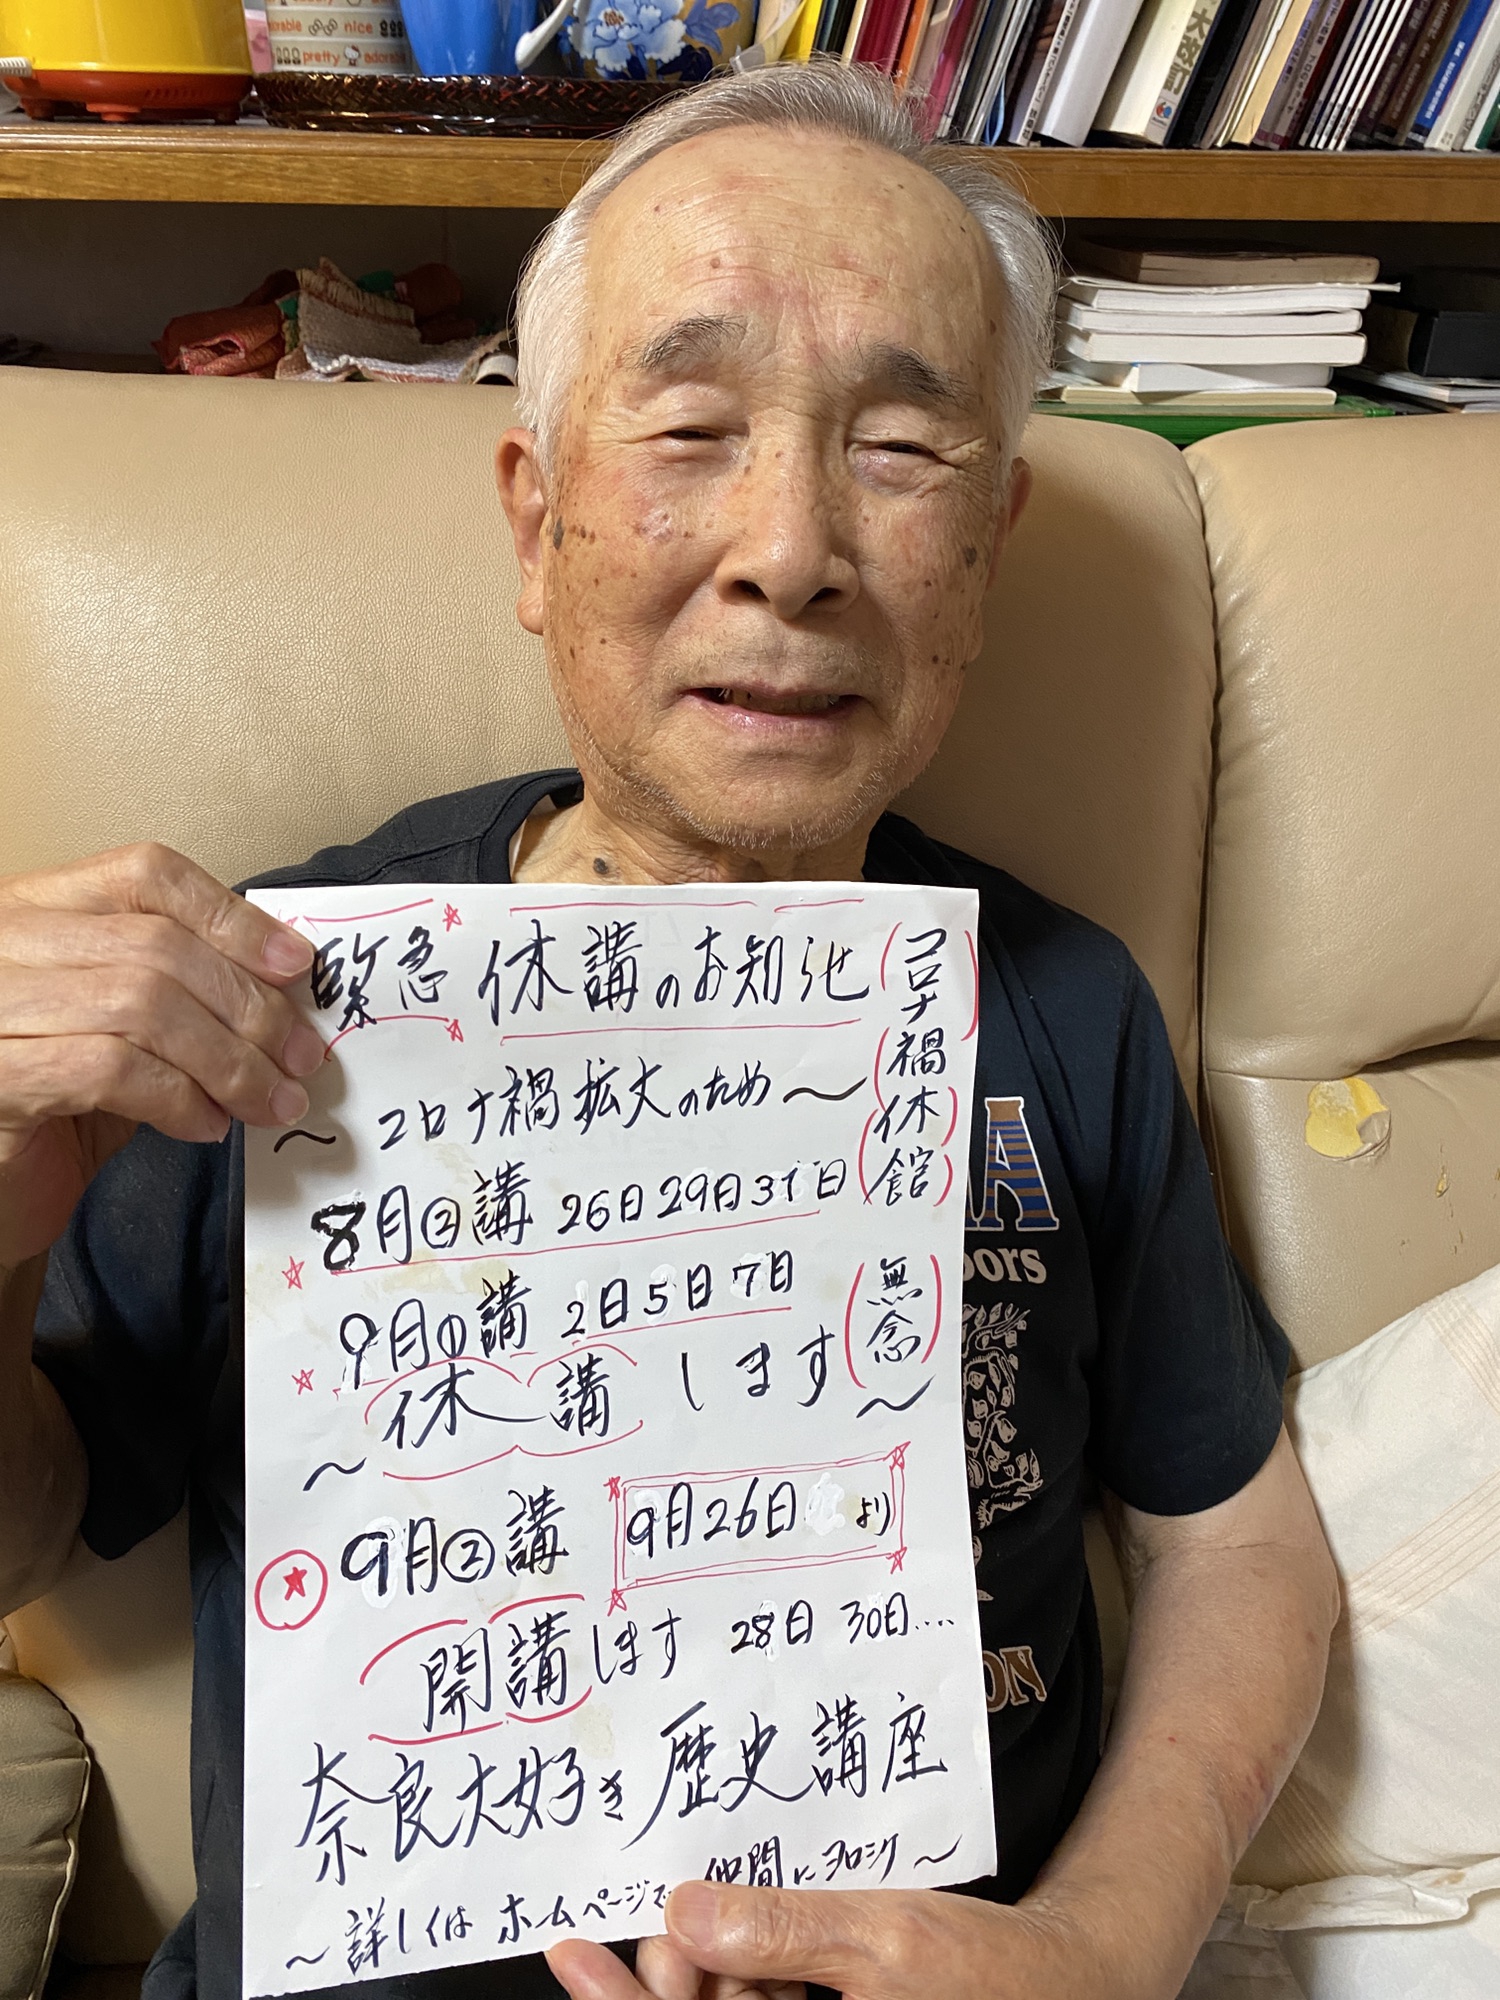 緊急 休講のお知らせ
(コロナ禍休館)
～ コロナ禍拡大のため ～
8月②講 26日29日31日
9月①講 2日5日7日
～ 休講 します ～
(無念)
9月②講 9月26日 より
開講します 28日 30日....
奈良大好き歴史講座
～詳しくは ホームページで 仲間にヨロシク～
nice
pretty
adorable
oors
ON